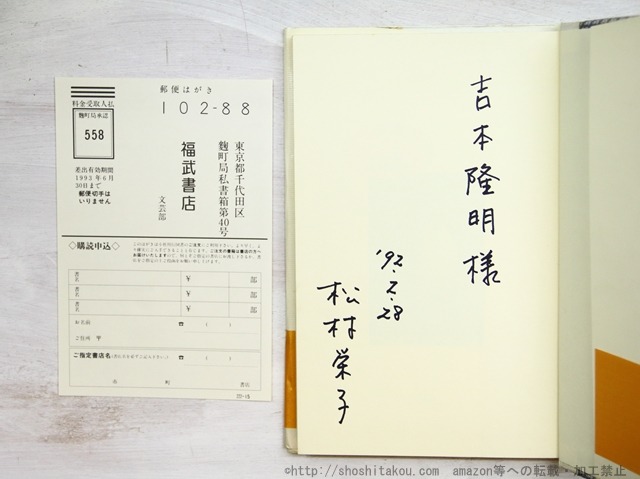 郵便はがき
102-88
料金受取人払
麹町局承認
558
差出有効期間
1993年6月
30日まで
郵便切手は
いりません
東京都千代田区
麹町局私書箱第40号
福武書店
文芸部
◇購読申込◇
書名
¥
部
書名
¥
部
書名
¥
部
お名前
☎ ( )
ご住所 〒
☎ ( )
ご指定書店名
市
町
書店
吉本隆明様
'92.2.28
松村栄子
©http://shoshitakou.com amazon等への転載・加工禁止